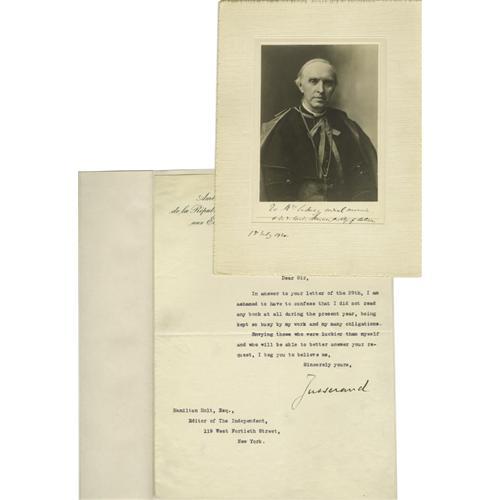 To Mrs
1st July 1920.
de la Répu
aux E
Dear Sir,
In answer to your letter of the 29th, I am
ashamed to have to confess that I did not read
any book at all during the present year, being
kept so busy by my work and my many obligations.
Envying those who were luckier than myself
and who will be able to better answer your re-
quest, I beg you to believe me,
Sincerely yours,
Jusserand
Hamilton Holt, Esq.,
Editor of The Independent,
119 West Fortieth Street,
New York.